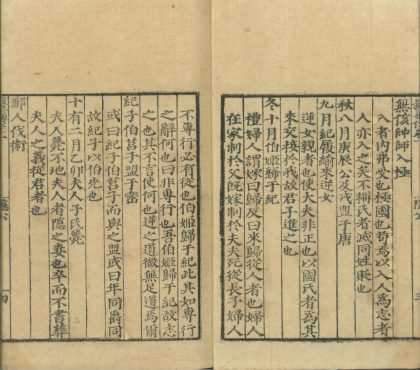 無侅帥師入極
入者内弗受也極國也苟焉以入人為志者
人亦入之矣不稱氏者滅同姓貶也
秋八月庚辰公及戎盟于唐
九月紀履緰來逆女
逆女親者也使大夫非正也以國氏者為其
來交接於我故君子進之也
冬十月伯姬歸于紀
禮婦人謂嫁曰歸反曰來歸從人者也婦人
在家制於父既嫁制於夫夫死從長子婦人
不專行必有從也伯姬歸于紀此其如專行
之辭何也曰非專行也吾伯姬歸于紀故志
之也其不言使何也逆之道微無足道焉爾
紀子伯莒子盟于密
或曰紀子伯莒子而與之盟或曰年同爵同
故紀子以伯先也
十有二月乙卯夫人子氏薨
夫人薨不地夫人者隱之妻也卒而不書葬
夫人之義從君者也
鄭人伐衛